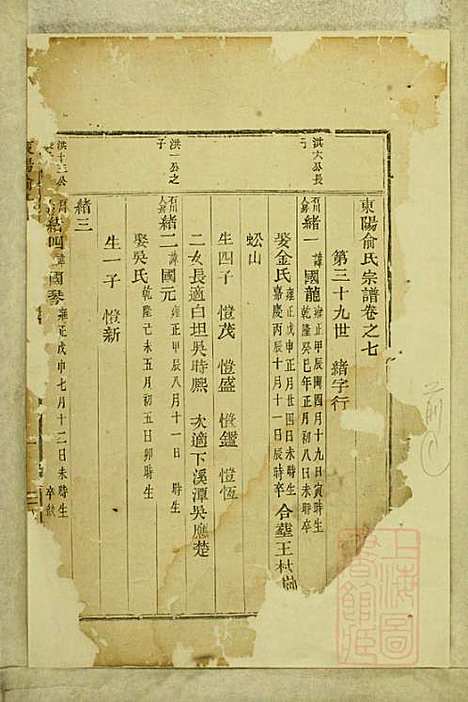 東陽俞氏宗譜卷之七
第三十九世 緒字行
洪六公長子
緒一 諱國龍 雍正甲辰閏四月十九日寅時生 乾隆癸巳年正月初八日未時卒
娶金氏 雍正戊申正月廿四日未時生 嘉慶丙辰十月十一日辰時卒 合葬王村
蚣山
生四子 憕茂 憕盛 憕鑑 憕恆
二女長適白坦吳時熙 次適下溪潭吳應楚
洪一公之子
緒二 諱國元 雍正甲辰八月十一日 時生
娶吳氏 乾隆己未五月初五日卯時生
生一子 憕新
緒三
洪十三公
緒四 諱國琴 雍正戊申七月十二日未時生
卒缺
上海圖書館藏